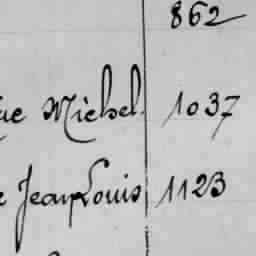 862
Michel 1037
Jean Louis 1123